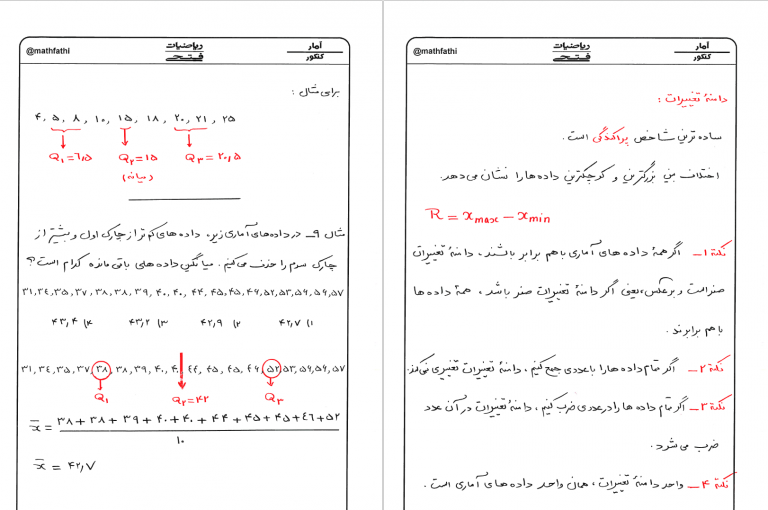 آمار
کنکور
ریاضیات
فتحی
@mathfathi
دامنهٔ تغییرات :
ساده ترین شاخص پراکندگی است .
اختلاف بین بزرگترین و کوچکترین داده ها را نشان می دهد.
R = xmax − xmin
نکتهٔ ۱ـ اگر همهٔ داده های آماری با هم برابر باشند ، دامنهٔ تغییرات
صفر است و برعکس ، یعنی اگر دامنهٔ تغییرات صفر باشد ، همهٔ داده ها
با هم برابرند .
نکتهٔ ۲ـ اگر تمام داده ها را با عددی جمع کنیم ، دامنهٔ تغییرات تغییری نمی کند.
نکتهٔ ۳ـ اگر تمام داده ها را در عددی ضرب کنیم ، دامنهٔ تغییرات در آن عدد
ضرب می شود .
نکتهٔ ۴ـ واحد دامنهٔ تغییرات ، همان واحد داده های آماری است .
آمار
کنکور
ریاضیات
فتحی
@mathfathi
برای مثال :
۴, ۵, ۸, ۱۰, ۱۵, ۱۸, ۲۰, ۲۱, ۲۵
Q۱ = ۶٫۵ Q۲ = ۱۵ Q۳ = ۲۰٫۵
(میانه)
مثال ۹ـ در داده های آماری زیر ، داده های کم تر از چارک اول و بیشتر از
چارک سوم را حذف می کنیم . میانگین داده های باقی مانده کدام است ؟
۳۱,۳۴,۳۵,۳۷,۳۸,۳۸,۳۹,۴۰,۴۰,۴۴,۴۵,۴۵,۴۶,۵۲,۵۳,۵۶,۵۶,۵۷
۱) ۴۲٫۷ ۲) ۴۲٫۹ ۳) ۴۳٫۲ ۴) ۴۳٫۴
۳۱,۳۴,۳۵,۳۷,۳۸,۳۸,۳۹,۴۰,۴۰,۴۴,۴۵,۴۵,۴۶,۵۲,۵۳,۵۶,۵۶,۵۷
Q۱ Q۲ = ۴۲ Q۳
x̄ = ۳۸+۳۸+۳۹+۴۰+۴۰+۴۴+۴۵+۴۵+۴۶+۵۲
۱۰
x̄ = ۴۲٫۷